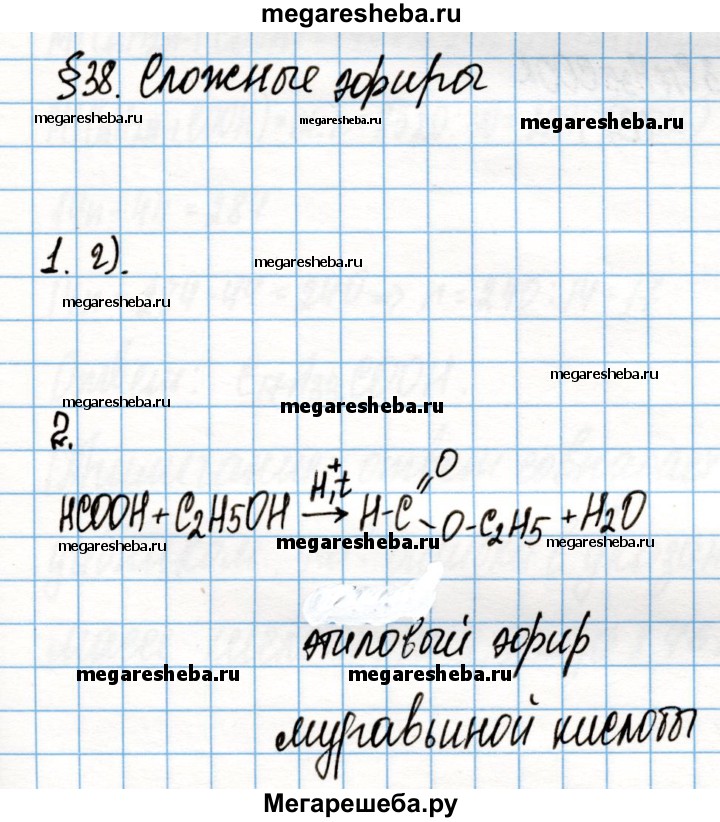 megaresheba.ru
§38. Сложные эфиры
megaresheba.ru megaresheba.ru megaresheba.ru
1. г).
megaresheba.ru
megaresheba.ru
megaresheba.ru
megaresheba.ru megaresheba.ru
2.
H⁺, t O
HCOOH + C₂H₅OH → H-C
O-C₂H₅ + H₂O
megaresheba.ru megaresheba.ru megaresheba.ru
этиловый эфир
megaresheba.ru megaresheba.ru
муравьиной кислоты
Мегарешеба.ру